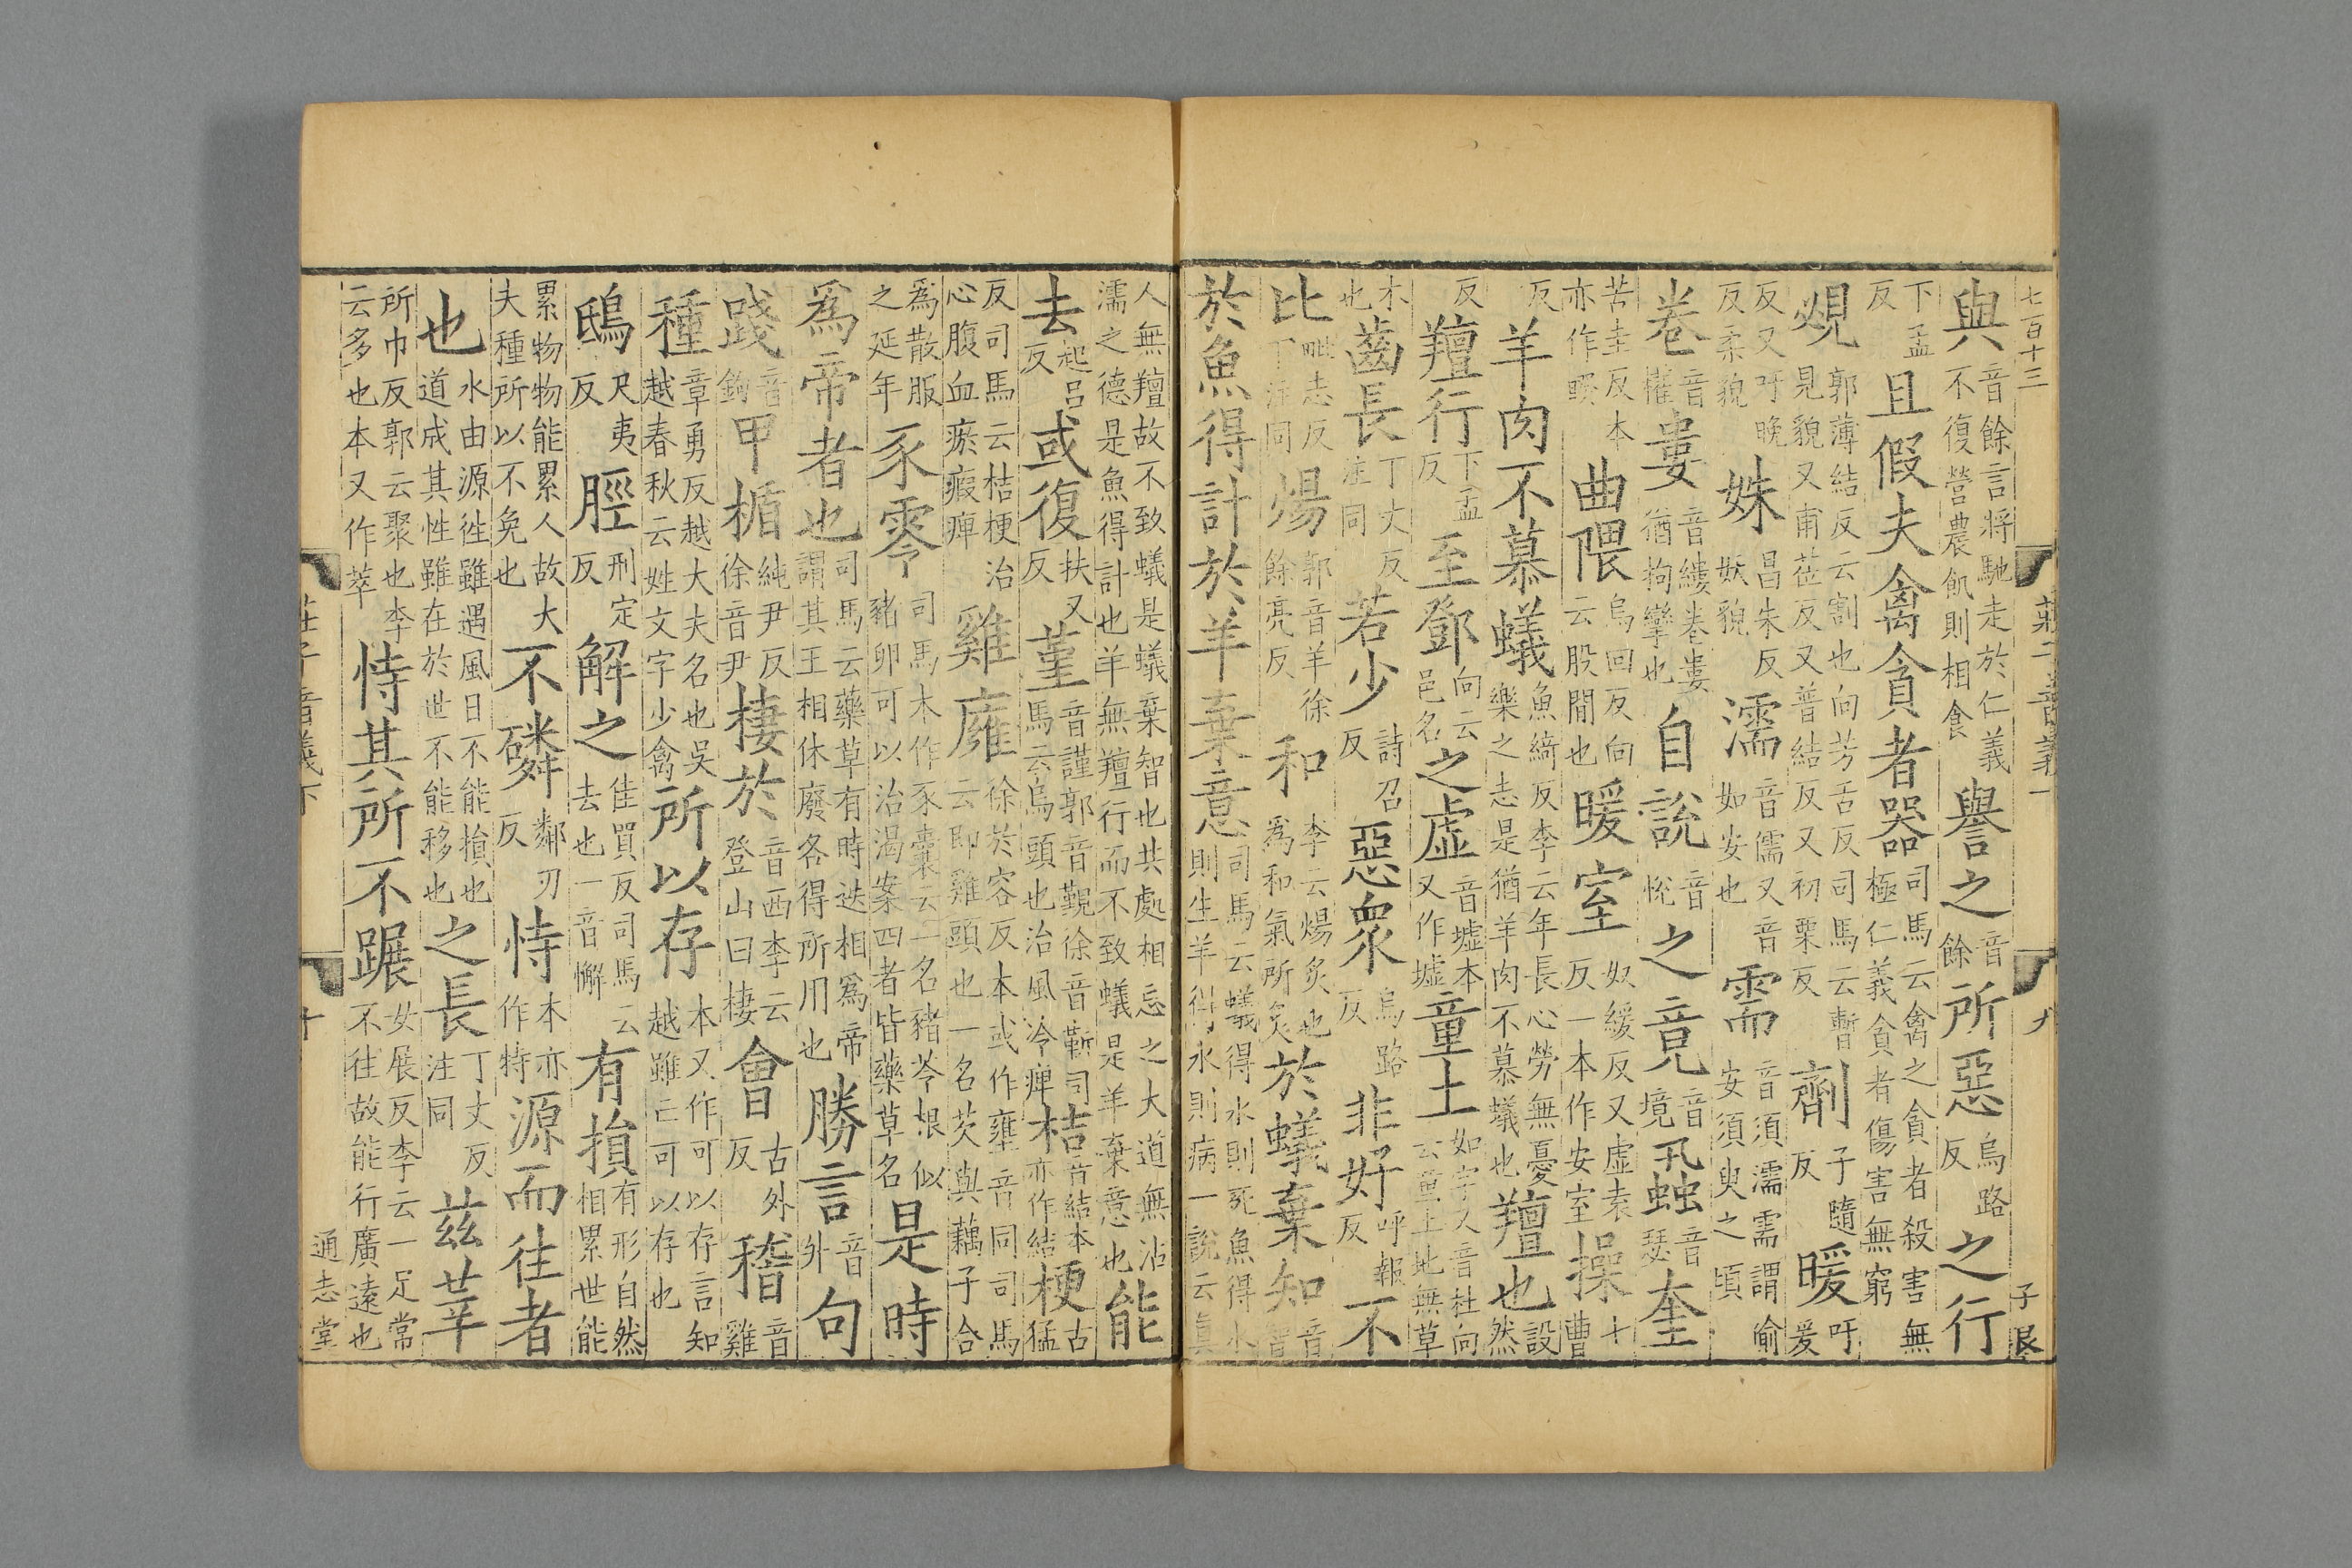 七百十三 莊子音義下 九 子艮
與音餘言將馳走於仁義不復營農飢則相食譽之音餘所惡烏路反之行
下孟反且假夫禽貪者器司馬云禽之貪者殺害無極仁義貪者傷害無窮
覕郭薄結反云割也向芳舌反司馬云暫見貌又甫莅反又普結反又初栗反劑子隨反暖吁爰
反又吁晚反柔貌姝昌朱反妖貌濡音儒又音如安也需音須濡需謂偷安須臾之頃
卷音權婁音縷卷婁猶拘攣也自說音悅之竟音境虱音瑟奎
苦圭反本亦作睽曲隈烏回反向云股閒也暖室奴緩反又虛袁反一本作安室操七曹
反羊肉不慕蟻魚綺反李云年長心勞無憂樂之志是猶羊肉不慕蟻也羶也設然
反羶行下孟反至鄧向云邑名之虛音墟本又作墟童土如字又音杜向云童土地無草
木也齒長丁丈反注同若少詩召反惡眾烏路反非好呼報反不
比毗志反下注同煬郭音羊徐餘亮反和李云煬炙也為和氣所炙於蟻棄知音智
於魚得計於羊棄意司馬云蟻得水則死魚得水則生羊得水則病一說云真
人無羶故不致蟻是蟻棄智也共處相忘之大道無沾濡之德是魚得計也羊無羶行而不致蟻是羊棄意也能
去起呂反或復扶又反堇音謹郭音覲徐音靳司馬云烏頭也治風冷痺桔音結本亦作結梗古猛
反司馬云桔梗治心腹血瘀瘕痺雞廱徐於容反本或作壅音同司馬云即雞頭也一名芡與藕子合
為散服之延年豕零司馬本作豕囊云一名豬苓根似豬卵可以治渴案四者皆藥草名是時
為帝者也司馬云藥草有時迭相為帝謂其王相休廢各得所用也勝言音升句
踐音鉤甲楯純尹反徐音尹棲於音西李云登山曰棲會古外反稽音雞
種章勇反越大夫名也吳越春秋云姓文字少禽所以存本又作可以存言知越雖亡可以存也
鴟尺夷反脛刑定反解之佳買反司馬云去也一音懈有損有形自然相累世能
累物物能累人故大夫種所以不免也不磷鄰刃反恃本亦作特源而往者
也水由源往雖遇風日不能損也道成其性雖在於世不能移也之長丁丈反注同茲莘
所巾反郭云聚也李云多也本又作萃恃其所不蹍女展反李云一足常不往故能行廣遠也
莊子音義下 十 通志堂